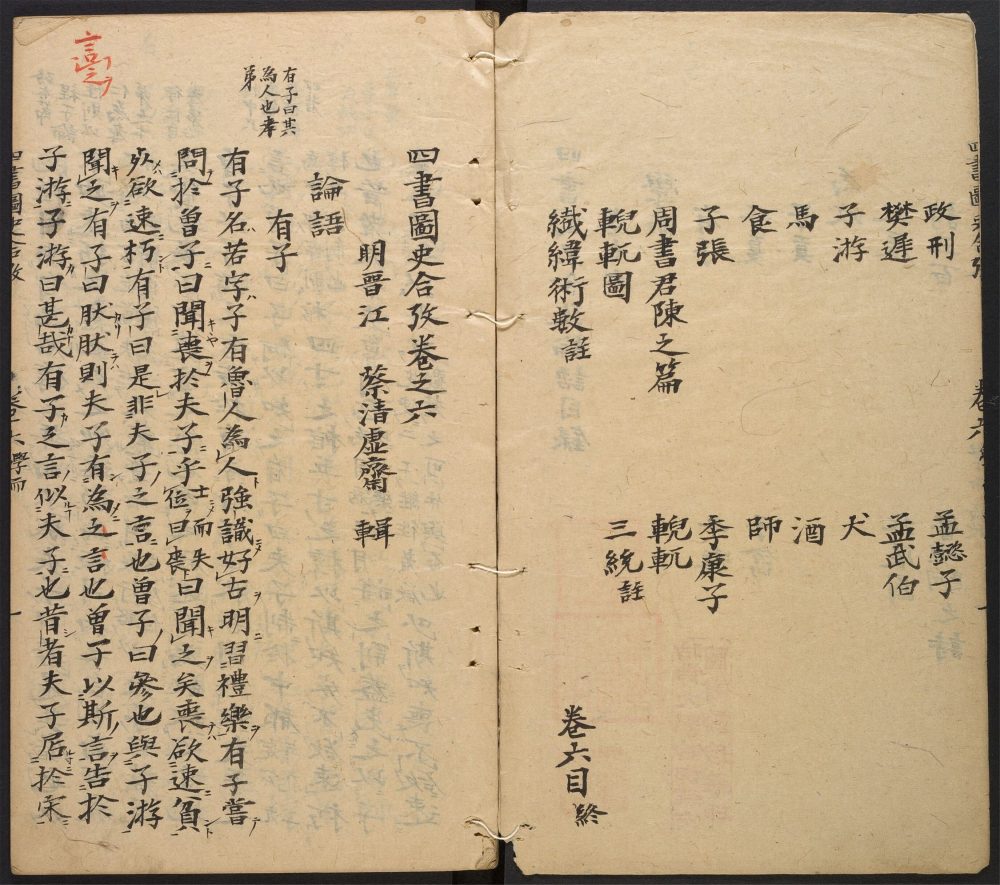 政刑　孟懿子
樊遲　孟武伯
子游　犬
馬　酒
食　師
子張　季康子
周書君陳之篇　輗軏
輗軏圖　三統註
讖緯術數註
卷六目終
四書圖史合攷卷之六
明晉江　蔡清虛齋　輯
論語
有子曰其
為人也孝
弟
有子
有子名若字子有魯人為人強識好古明習禮樂有子嘗
問於曾子曰聞喪於夫子乎士而失位曰喪曰聞之矣喪欲速貧
死欲速朽有子曰是非夫子之言也曾子曰參也與子游
聞之有子曰肰肰則夫子有為之言也曾子以斯言告於
子游子游曰甚哉有子之言似夫子也昔者夫子居於宋